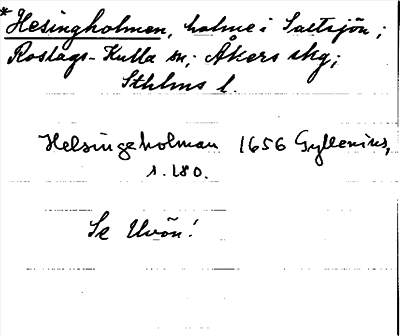 *Hesingholmen, holme i Saltsjön;
Roslags-Kulla sn; Åkers skg;
Sthlms l.
Helsingeholman 1656 Gyllenius,
s. 180.
Se Uvön!